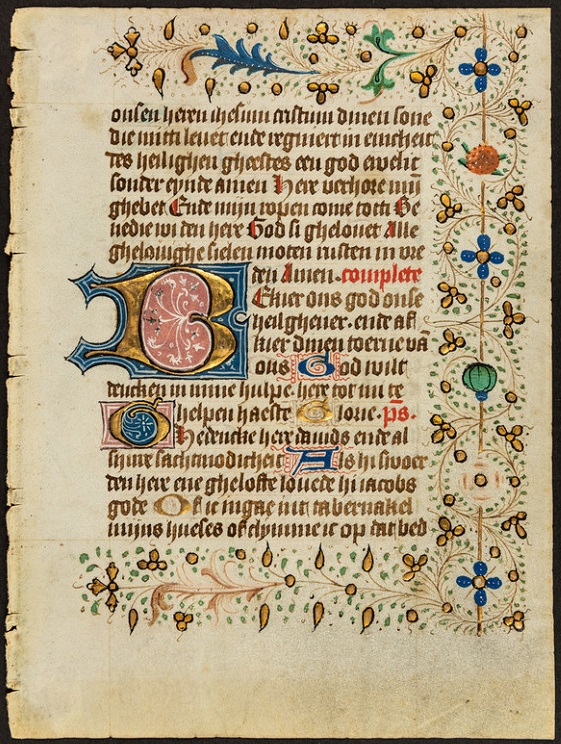 onsen heren ihesum cristum dinen sone
die mitti levet ende regniert in einicheit
des heilighen gheestes een god ewelic
sonder eynde amen Here verhore mijn
ghebet Ende mijn ropen come totti Be
nedie wi den here God si ghelovet Alle
ghelovighe sielen moten rusten in vre
den Amen. complete
Ekeer ons god onse
heilghever. ende af
kier dinen toerne van
ons God wilt
dencken in mine hulpe. here tot mi te
helpen haeste Glorie. ps.
Ghedencke here davids ende al
sijnre sachtmodicheit Als hi swoer
den here ene ghelofte lovede hi iacobs
gode Of ic ingae int tabernakel
mijns huses of clymme ic op dat bed